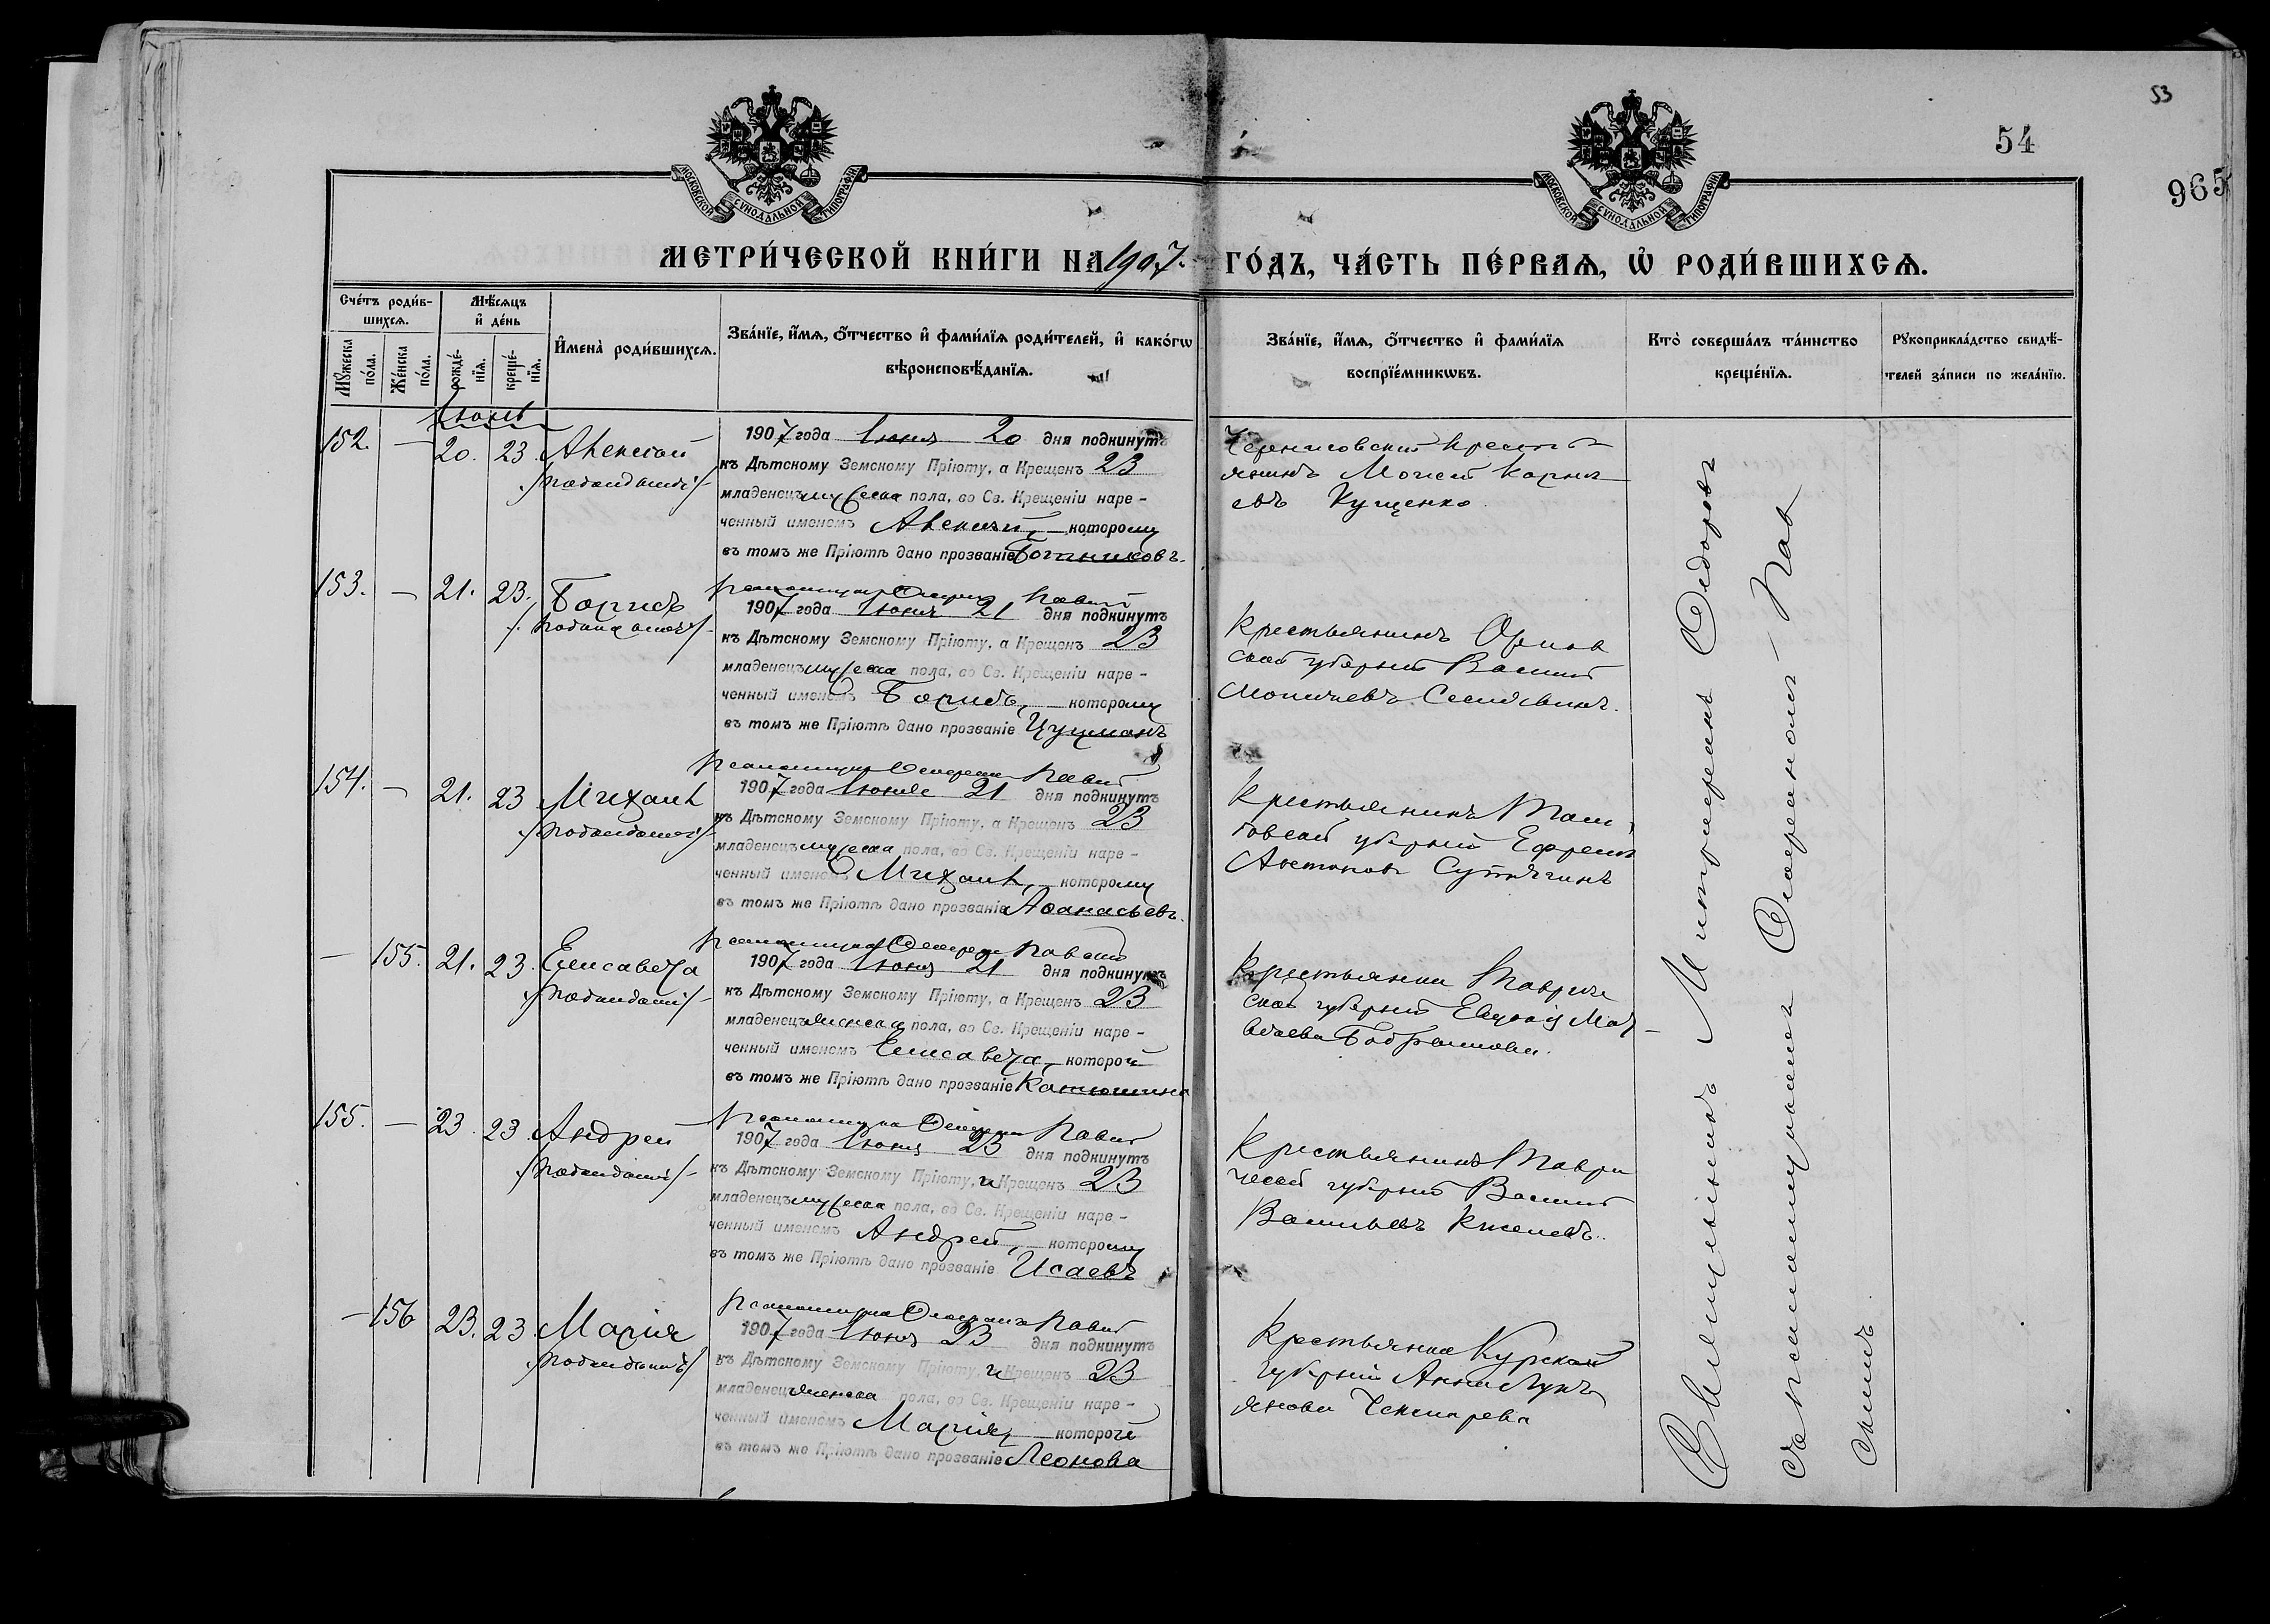 53
54
965
МОСКОВСКОЙ СУНОДАЛЬНОЙ ТИПОГРАФІИ
МОСКОВСКОЙ СУНОДАЛЬНОЙ ТИПОГРАФІИ
МЕТРИ́ЧЕСКОЙ КНИ́ГИ НА 1907. ГО́ДЪ, ЧА́СТЬ ПЕ́РВАѦ, Ѡ҆ РОДИ́ВШИХСѦ.
Сче́тъ роди́в-
шихсѧ.
Мꙋ́жеска по́ла.
Же́нска по́ла.
Мѣ́сѧцъ
и҆ де́нь
рожде́-нїѧ.
креще́-нїѧ.
И҆мена̀ роди́вшихсѧ.
Зва́нїе, и҆́мѧ, ѻ҆́тчество и҆ фами́лїѧ роди́телей, и҆ како́гѡ
вѣроисповѣ́данїѧ.
Зва́нїе, и҆́мѧ, ѻ҆́тчество и҆ фами́лїѧ
воспрїе́мникѡвъ.
Кто̀ соверша́лъ та́инство
креще́нїѧ.
Рꙋкоприкла́дство свидѣ́-
телей за́писи по жела́нїю.
Іюнь
152. — 20. 23. Алексій
1907 года Іюня 20 дня подкинутъ
къ Дѣтскому Земскому Пріюту, а Крещенъ 23
младенецъ мужеска пола, во Св. Крещеніи наре-
ченный именемъ Алексій, которому
въ томъ же Пріютѣ дано прозваніе
Крестья-
янинъ Моисей Корнѣ-
евъ Кущенко
153. — 21. 23. Борисъ
1907 года Іюня 21 дня подкинутъ
къ Дѣтскому Земскому Пріюту, а Крещенъ 23
младенецъ мужеска пола, во Св. Крещеніи наре-
ченный именемъ Борисъ, которому
въ томъ же Пріютѣ дано прозваніе Цуцманъ
Крестьянинъ Орлов
ской губерніи Василій
154. — 21. 23 Михаилъ
1907 года Іюня 21 дня подкинутъ
къ Дѣтскому Земскому Пріюту, а Крещенъ 23
младенецъ мужеска пола, во Св. Крещеніи наре-
ченный именемъ Михаилъ, которому
въ томъ же Пріютѣ дано прозваніе Аѳанасьевъ.
Крестьянинъ Там-
бовской губерніи Ефремъ
Антоновъ Сутягинъ
— 155. 21. 23. Елисавета
1907 года Іюня 21 дня подкинутъ
къ Дѣтскому Земскому Пріюту, а Крещенъ 23
младенецъ женска пола, во Св. Крещеніи наре-
ченный именемъ Елисавета, которой
въ томъ же Пріютѣ дано прозваніе Катюшина
Крестьянка Тавриче
ской губерніи Евдокія Мат-
вѣева
155. — 23. 23. Андрей
1907 года Іюня 23 дня подкинутъ
къ Дѣтскому Земскому Пріюту, и Крещенъ 23
младенецъ мужеска пола, во Св. Крещеніи наре-
ченный именемъ Андрей, которому
въ томъ же Пріютѣ дано прозваніе Исаевъ
Крестьянинъ Таври
ческой губерніи Василій
Васильевъ Киселевъ.
— 156 23. 23. Марія
1907 года Іюня 23 дня подкинутъ
къ Дѣтскому Земскому Пріюту, и Крещенъ 23
младенецъ женска пола, во Св. Крещеніи наре-
ченный именемъ Марія, которой
въ томъ же Пріютѣ дано прозваніе Леонова
Крестьянка Курской
губерніи Анна Лукь
янова
Священникъ Митрофанъ Ѳедоровъ
съ псаломщикомъ